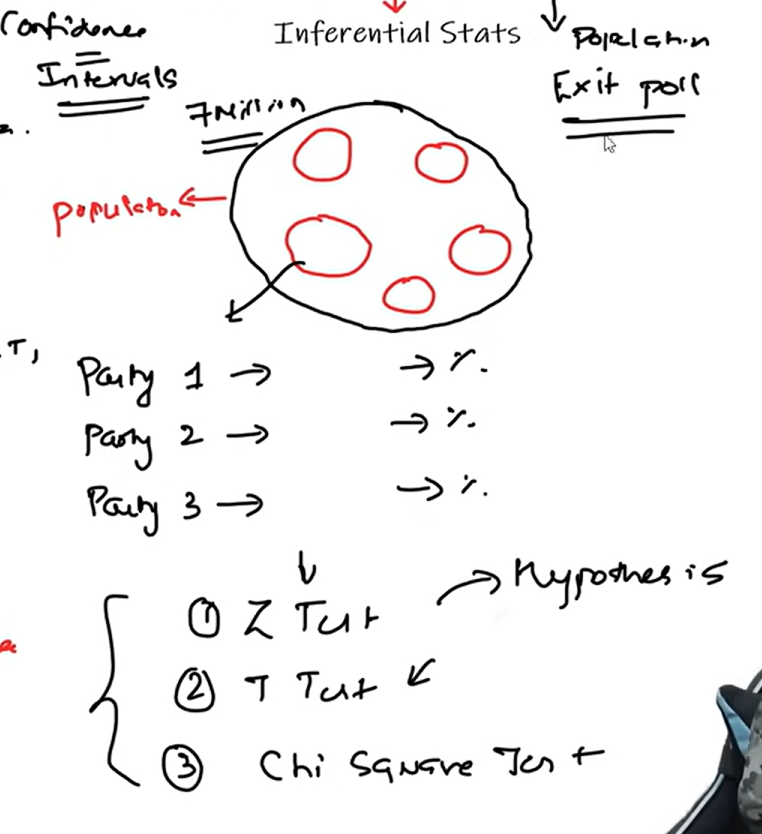 Confidence
Intervals
Inferential Stats
Population
Exit poll
7 Million
population
T,
Party 1 → → %.
Party 2 → → %.
Party 3 → → %.
Hypothesis
① Z Test
② T Test
③ Chi Square Test